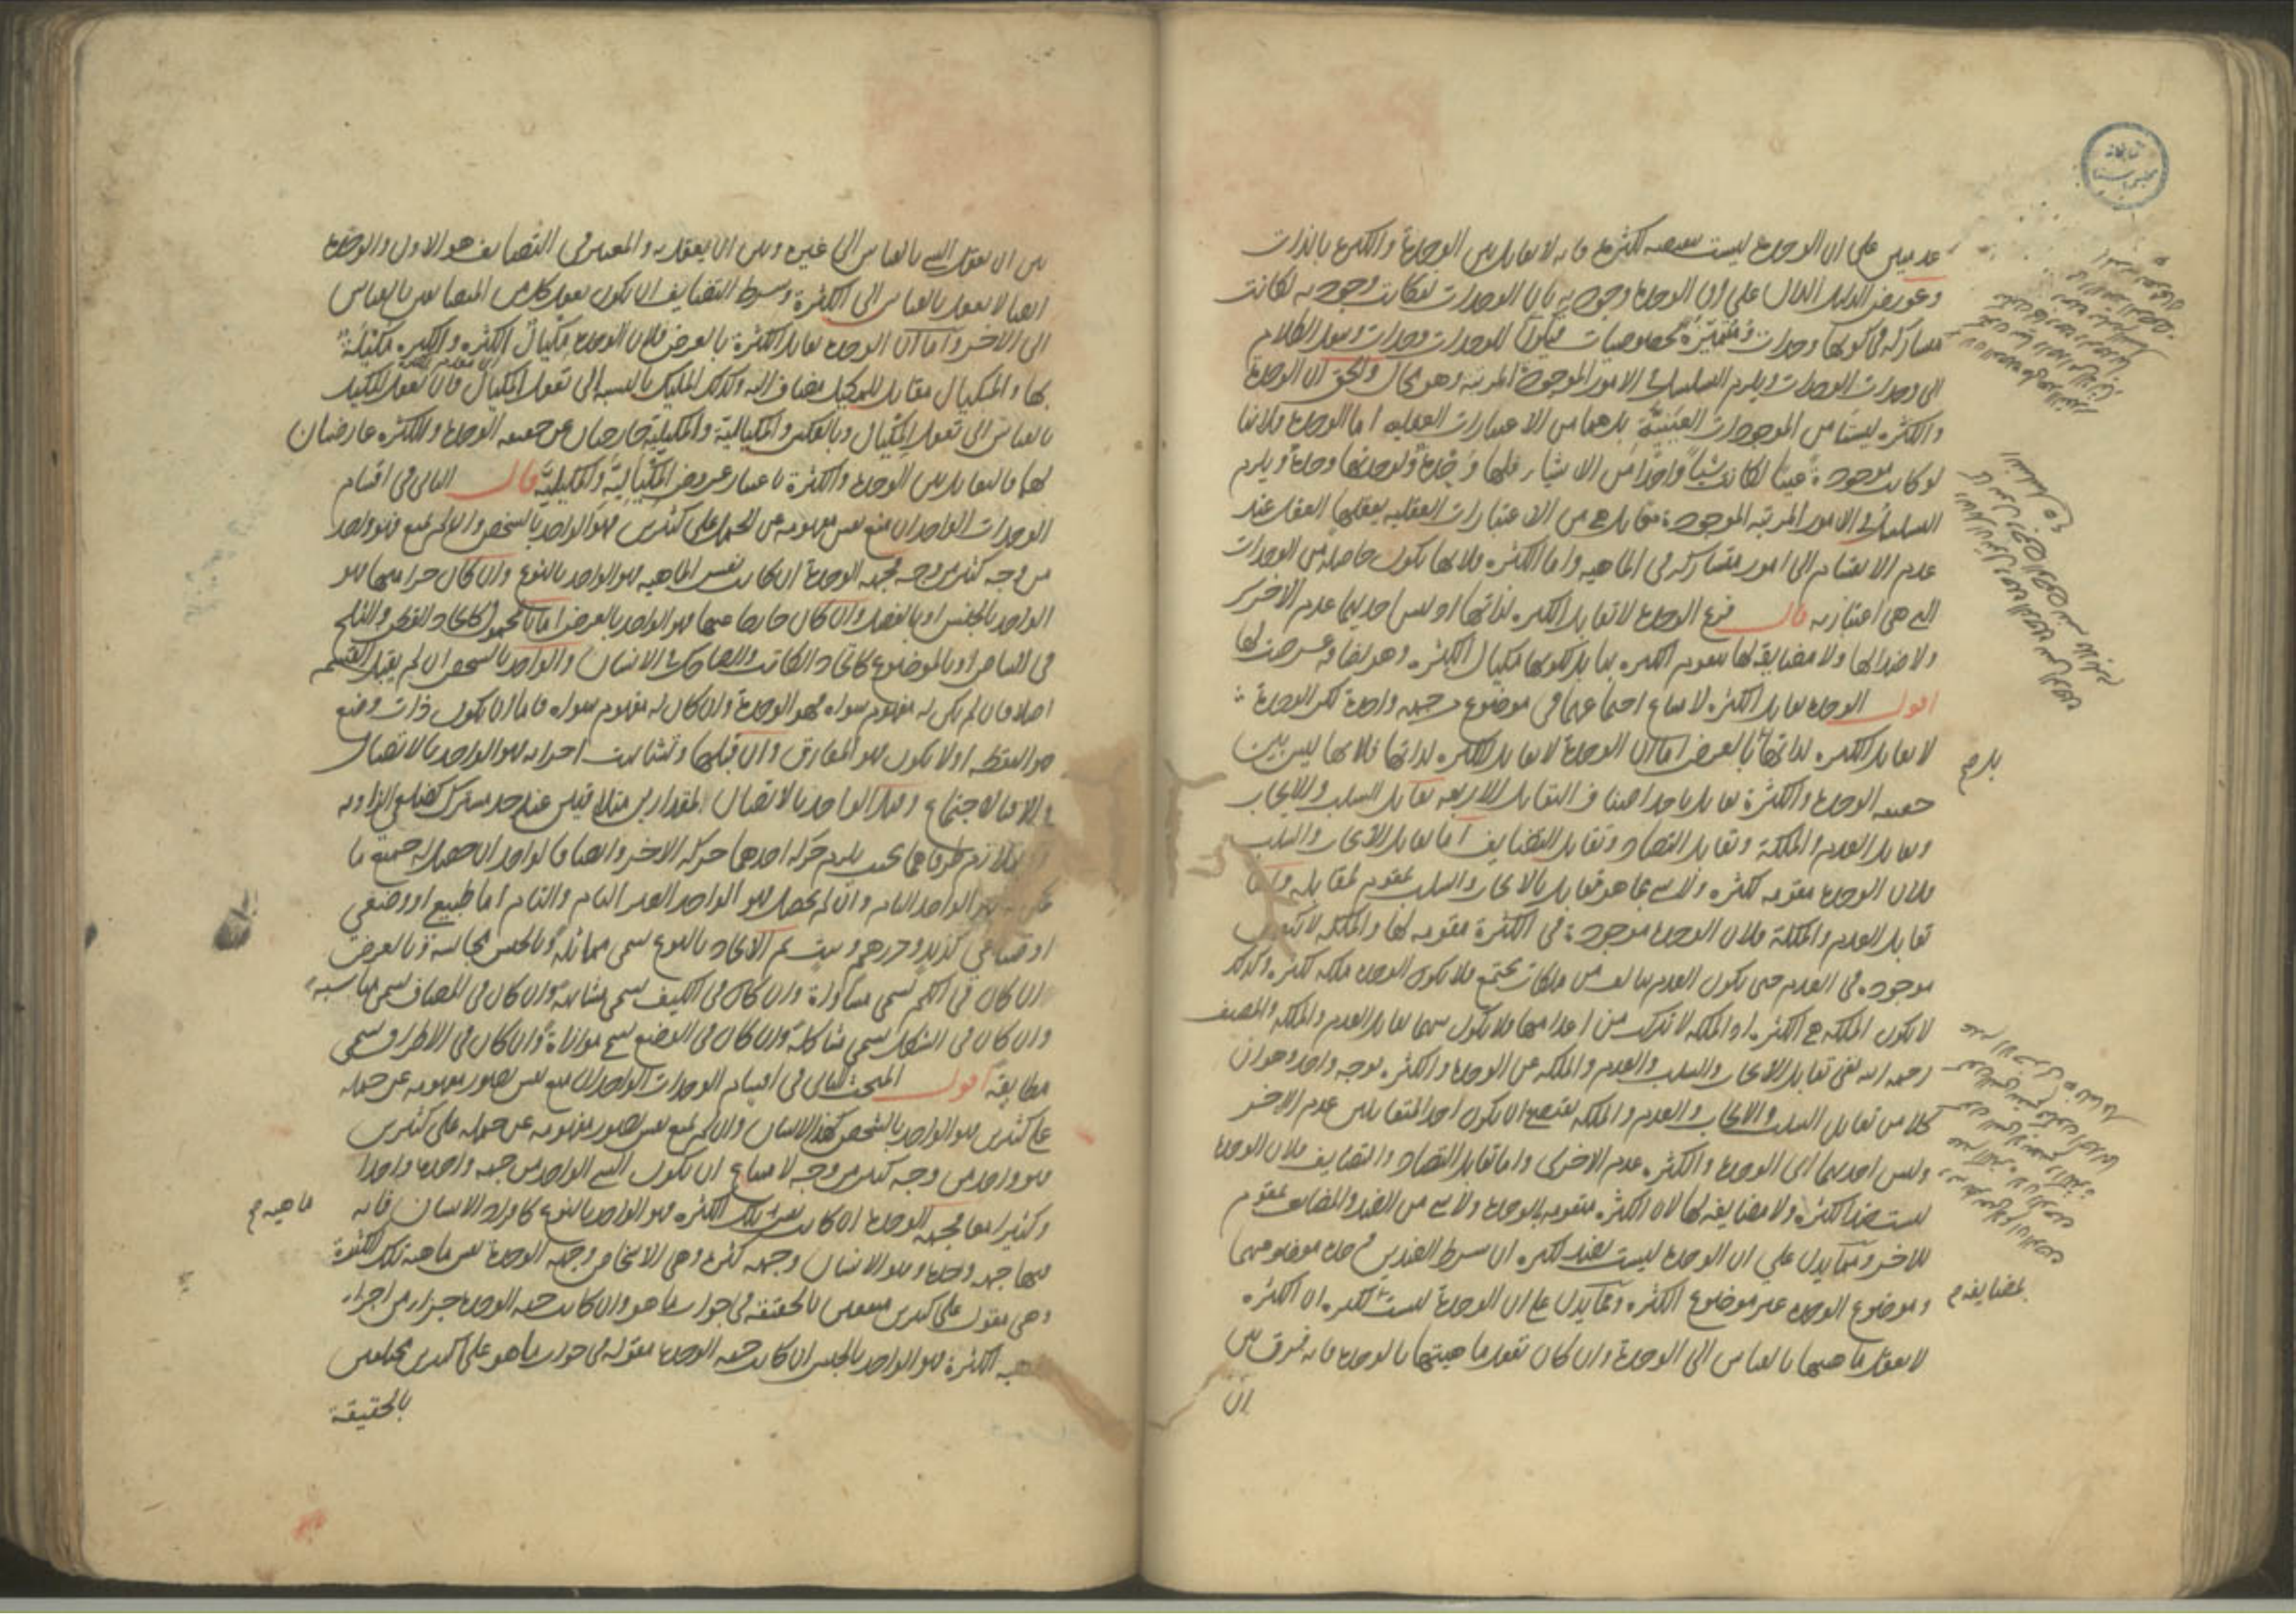 على ان الوحدة ليست نفس الكثرة فانه لا تقابل بين الوحدة والكثرة بالذات
وعورض الدليل الدال على ان الوحدة وجودية بان الوحدات لو كانت وجودية لكانت
مشاركة في كونها وحدات ومتميزة بخصوصيات فيكون للوحدات وحدات وينقل الكلام
الى وحدات الوحدات ويلزم التسلسل في الامور الموجودة المرتبة وهو محال والحق ان الوحدة
والكثرة ليستا من الموجودات العينية بل هما من الاعتبارات العقلية اما الوحدة فلانها
لو كانت موجودة عينا لكانت شيئا واحدا من الاشياء فلها وحدة ولوحدتها وحدة ويلزم
التسلسل في الامور المرتبة الموجودة معا بل هي من الاعتبارات العقلية يعقلها العقل عند
عدم الانقسام الى امور متشاركة في الماهية واما الكثرة فلانها تكون حاصلة من الوحدات
التي هي اعتبارية قال فرع الوحدة لا تقابل الكثرة لذاتها اذ ليس احديهما عدم الاخرى
ولا ضدا لها ولا مضايفة لها لتقوم الكثرة بها بل لكونها مكيال الكثرة وهو اضافة عرضت لها
اقول الوحدة تقابل الكثرة لامتناع اجتماعهما في موضوع من جهة واحدة لكن الوحدة
لا تقابل الكثرة لذاتها بالعرض اما ان الوحدة لا تقابل الكثرة لذاتها فلانها ليس بين
حقيقة الوحدة والكثرة تقابل باحد اصناف التقابل الاربعة تقابل السلب والايجاب
وتقابل العدم والملكة وتقابل التضاد وتقابل التضايف اما تقابل الايجاب والسلب
فلان الوحدة مقومة للكثرة ولا شيء مما هو تقابل بالايجاب والسلب بمقوم لمقابله واما
تقابل العدم والملكة فلان الوحدة موجودة في الكثرة مقومة لها والملكة لا تكون
موجودة في العدم حتى يكون العدم تتالف من ملكات تجتمع فلا يكون الوحدة ملكة للكثرة وكذلك
لا يكون الملكة هي الكثرة اذ الملكة لا تترك من اعدامها فلا يكون بينهما تقابل العدم والملكة والمصنف
رحمه الله نفى تقابل الايجاب والسلب والعدم والملكة عن الوحدة والكثرة بوجه واحد وهو ان
كلا من تقابل السلب والايجاب والعدم والملكة يقتضي ان يكون احد المتقابلين عدم الاخر
وليس احديهما اي الوحدة والكثرة عدم الاخرى واما تقابل التضاد والتضايف فلان الوحدة
ليست ضدا للكثرة ولا مضايفة لها لان الكثرة متقومة بالوحدة ولا شيء من الضد والمضايف بمقوم
للاخر ومما يدل على ان الوحدة ليست بضد للكثرة ان شرط الضدين وحدة موضوعهما
وموضوع الوحدة غير موضوع الكثرة ومما يدل على ان الوحدة ليست للكثرة ان الكثرة
لا تعقل ماهيتها بالقياس الى الوحدة وان كان تعقل ماهيتها بالوحدة فانه فرق بين
ان
بل م
بمضايفة م
بين ان يعقل الشيء بالقياس الى غيره وبين ان يعقل به والمعتبر في التضايف هو الاول والوحدة
ايضا لا تعقل بالقياس الى الكثرة وشرط التضايف ان يكون تعقل كل من المتضايفين بالقياس
الى الاخر واما ان الوحدة تقابل الكثرة بالعرض فلان الوحدة مكيال الكثرة والكثرة مكيلة
بها والمكيال مقابل للمكيل مضاف اليه وكذلك المكيل بالنسبة الى تعقل المكيال فان تعقل المكيل
بالقياس الى تعقل المكيال وبالعكس والمكيالية والمكيلية خارجتان عن حقيقة الوحدة والكثرة عارضتان
لهما فالتقابل بين الوحدة والكثرة باعتبار عروض المكيالية والمكيلية قال الثاني في اقسام
الوحدات الواحد ان منع نفس مفهومه عن الحمل على كثيرين فهو الواحد بالشخص وان لم يمنع فهو واحد
من وجه كثير من وجه فجهة الوحدة ان كانت نفس الماهية فهو الواحد بالنوع وان كان جزا منها فهو
الواحد بالجنس او بالفصل وان كان خارجا عنها فهو الواحد بالعرض اما بالمحمول كاتحاد القطن والثلج
في البياض او بالموضوع كاتحاد الكاتب والضاحك في الانسان والواحد بالشخص ان لم يقبل القسمة
اصلا فان لم يكن له مفهوم سواه فهو الوحدة وان كان له مفهوم سواه فاما ان يكون ذات وضع
هو النقطة او لا يكون فهو المفارق وان قبلها وتشابهت اجزاءه فهو الواحد بالاتصال
والا فبالاجتماع وقد يقال الواحد بالاتصال لمقدارين متلاقيين عند حد مشترك كضلعي الزاوية
او يتلازم طرفاهما بحيث يلزم حركة احدهما حركة الاخر وايضا فالواحد ان حصل له جميع ما
يمكن له فهو الواحد التام وان لم يحصل فهو الواحد الغير التام والتام اما طبيعي او وضعي
او صناعي كزيد ودرهم وبيت ثم الاتحاد بالنوع يسمى مماثلة وبالجنس مجانسة وبالعرض
ان كان في الكم يسمى مساواة وان كان في الكيف يسمى مشابهة وان كان في المضاف يسمى مناسبة
وان كان في الشكل يسمى مشاكلة وان كان في الوضع يسمى موازاة وان كان في الاطراف يسمى
مطابقة اقول المبحث الثاني في اقسام الوحدات الواحد ان منع نفس تصور مفهومه عن حمله
على كثيرين فهو الواحد بالشخص كهذا الانسان وان لم يمنع نفس تصور مفهومه عن حمله على كثيرين
فهو واحد من وجه كثير من وجه لامتناع ان يكون الشيء الواحد من جهة واحدة واحدا
وكثيرا معا فجهة الوحدة ان كانت نفس تلك الكثرة فهو الواحد بالنوع كافراد الانسان فانه
فيها جهة وحدة وهو الانسان وجهة كثرة وهي الاشخاص وجهة الوحدة نفس ماهية تلك الكثرة
وهي مقول على كثيرين متفقين بالحقيقة في جواب ما هو وان كانت جهة الوحدة جزءا من اجزاء
ماهية الكثرة فهو الواحد بالجنس ان كانت جهة الوحدة مقولة في جواب ما هو على كثيرين مختلفين
بالحقيقة
ماهية م